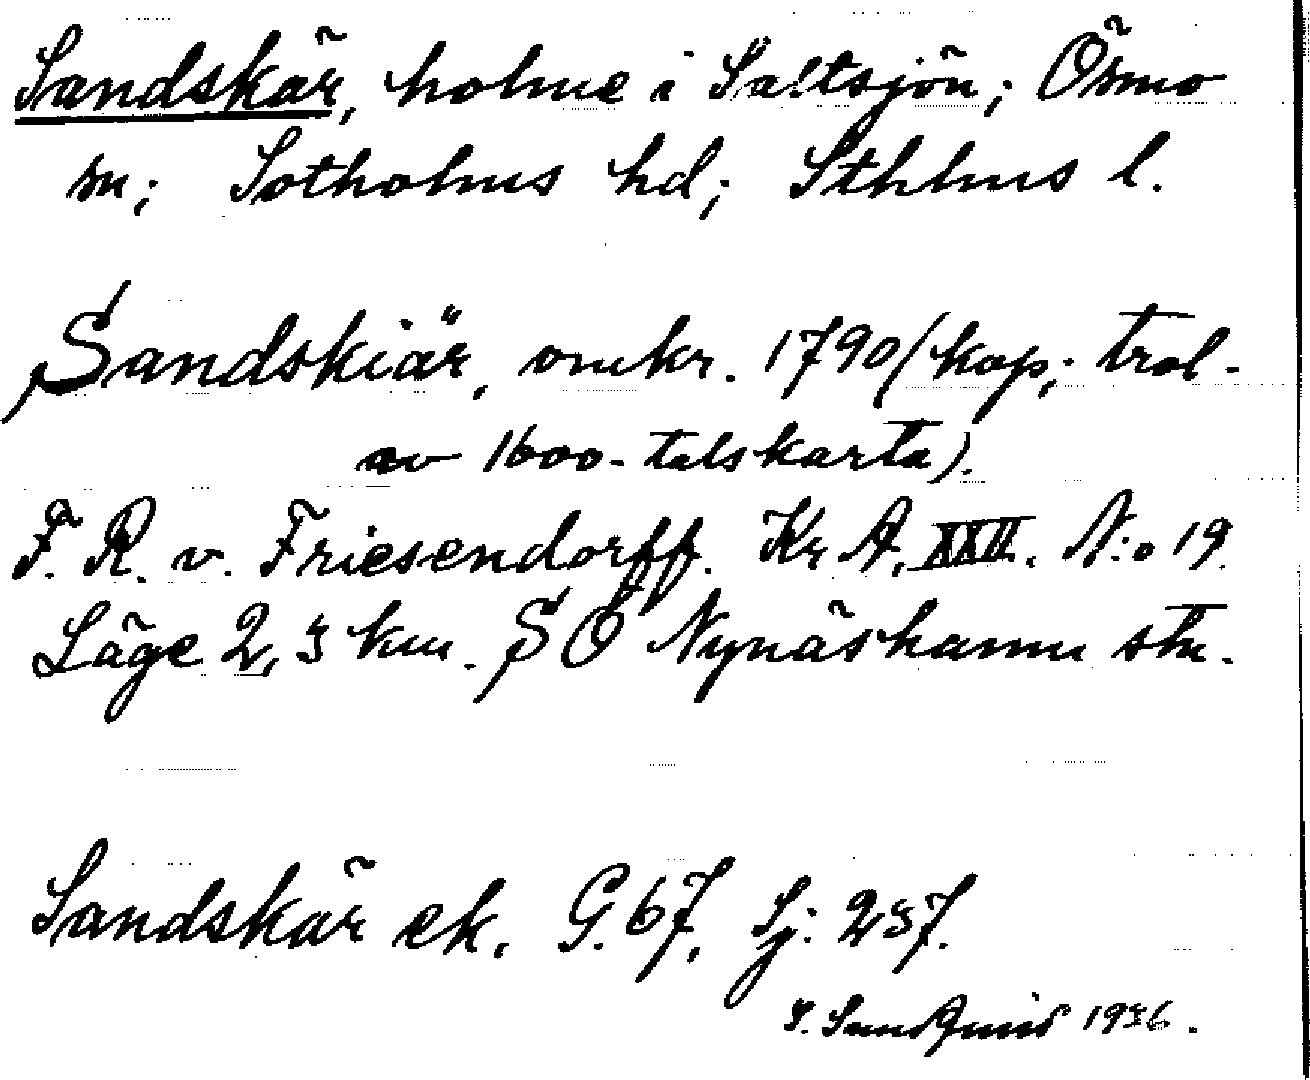 Sandskär, holme i Saltsjön; Ösmo
sn; Sotholms hd; Sthlms l.
Sandskiär, omkr. 1790 (kop; trol.
av 1600-talskarta).
F. R. v. Friesendorff. Kr A, XXII. N:o 19.
Läge 2,3 km. SO Nynäshamn stn.
Sandskär ek. G. 67, Sj: 257.
Sundquist 1936.